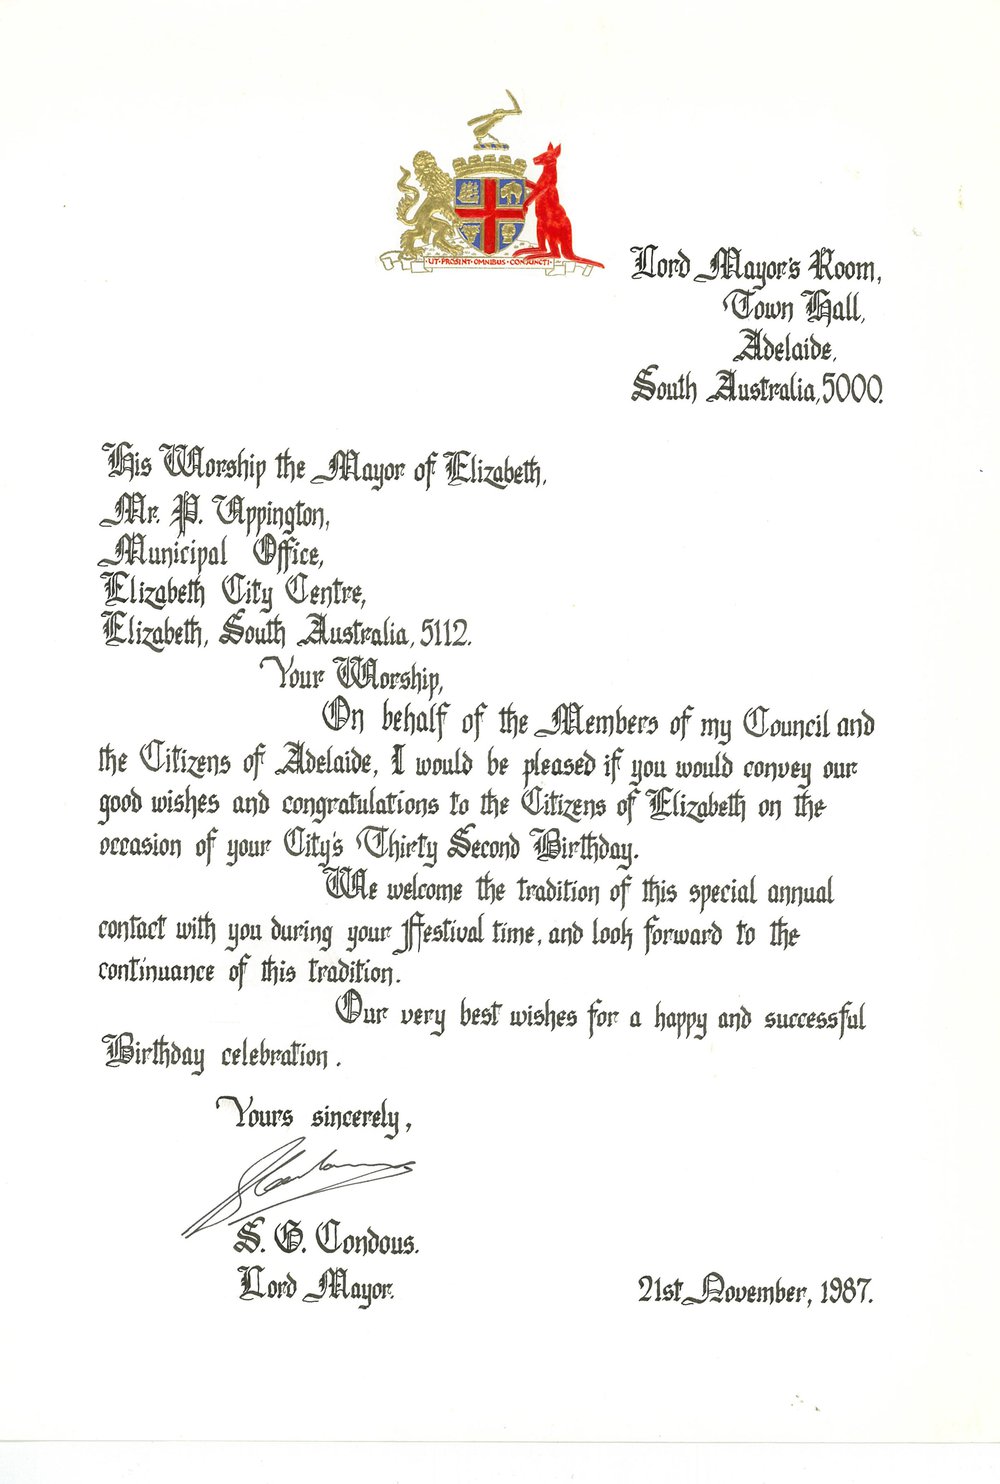 UT·PROSINT·OMNIBUS·CONJUNCTI·
Lord Mayor's Room,
Town Hall,
Adelaide,
South Australia, 5000.
His Worship the Mayor of Elizabeth,
Mr. P. Uppington,
Municipal Office,
Elizabeth City Centre,
Elizabeth, South Australia, 5112.
Your Worship,
On behalf of the Members of my Council and
the Citizens of Adelaide, I would be pleased if you would convey our
good wishes and congratulations to the Citizens of Elizabeth on the
occasion of your City's Thirty Second Birthday.
We welcome the tradition of this special annual
contact with you during your Festival time, and look forward to the
continuance of this tradition.
Our very best wishes for a happy and successful
Birthday celebration.
Yours sincerely,
S. G. Condous.
Lord Mayor.
21st November, 1987.